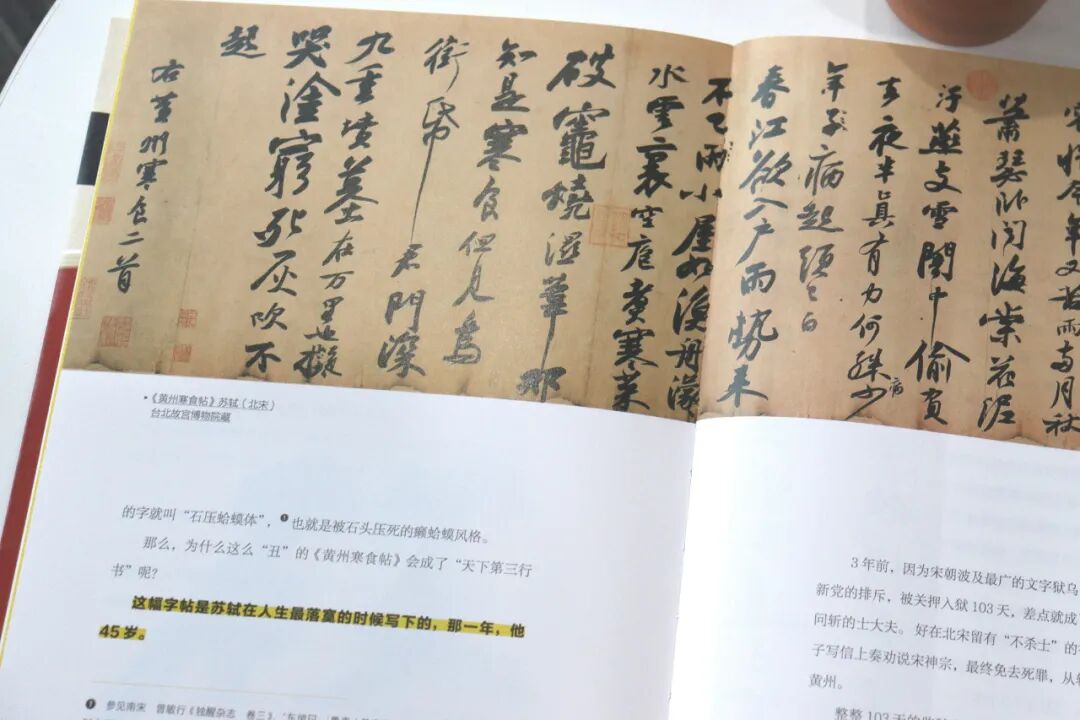 惜今年又苦雨兩月秋
蕭瑟臥聞海棠花泥
汙燕支雪闇中偷負
去夜半真有力何殊少
病
年子病起頭已白
春江欲入戶雨勢來
不已雨小屋如漁舟濛
水雲裏空庖煮寒菜
破竈燒濕葦那
知是寒食但見烏
銜帋君門深
九重墳墓在万里也擬
哭塗窮死灰吹不
起
右黃州寒食二首
•《黄州寒食帖》苏轼（北宋）
台北故宫博物院藏
的字就叫“石压蛤蟆体”，❶也就是被石头压死的癞蛤蟆风格。
那么，为什么这么“丑”的《黄州寒食帖》会成了“天下第三行
书”呢？
这幅字帖是苏轼在人生最落寞的时候写下的，那一年，他
45 岁。
❶ 参见南宋 曾敏行《独醒杂志 卷三》，“东坡曰
3 年前，因为宋朝波及最广的文字狱乌
新党的排斥，被关押入狱 103 天，差点就成
问斩的士大夫。好在北宋留有“不杀士”的
子写信上奏劝说宋神宗，最终免去死罪，从轻
黄州。
整整 103 天的